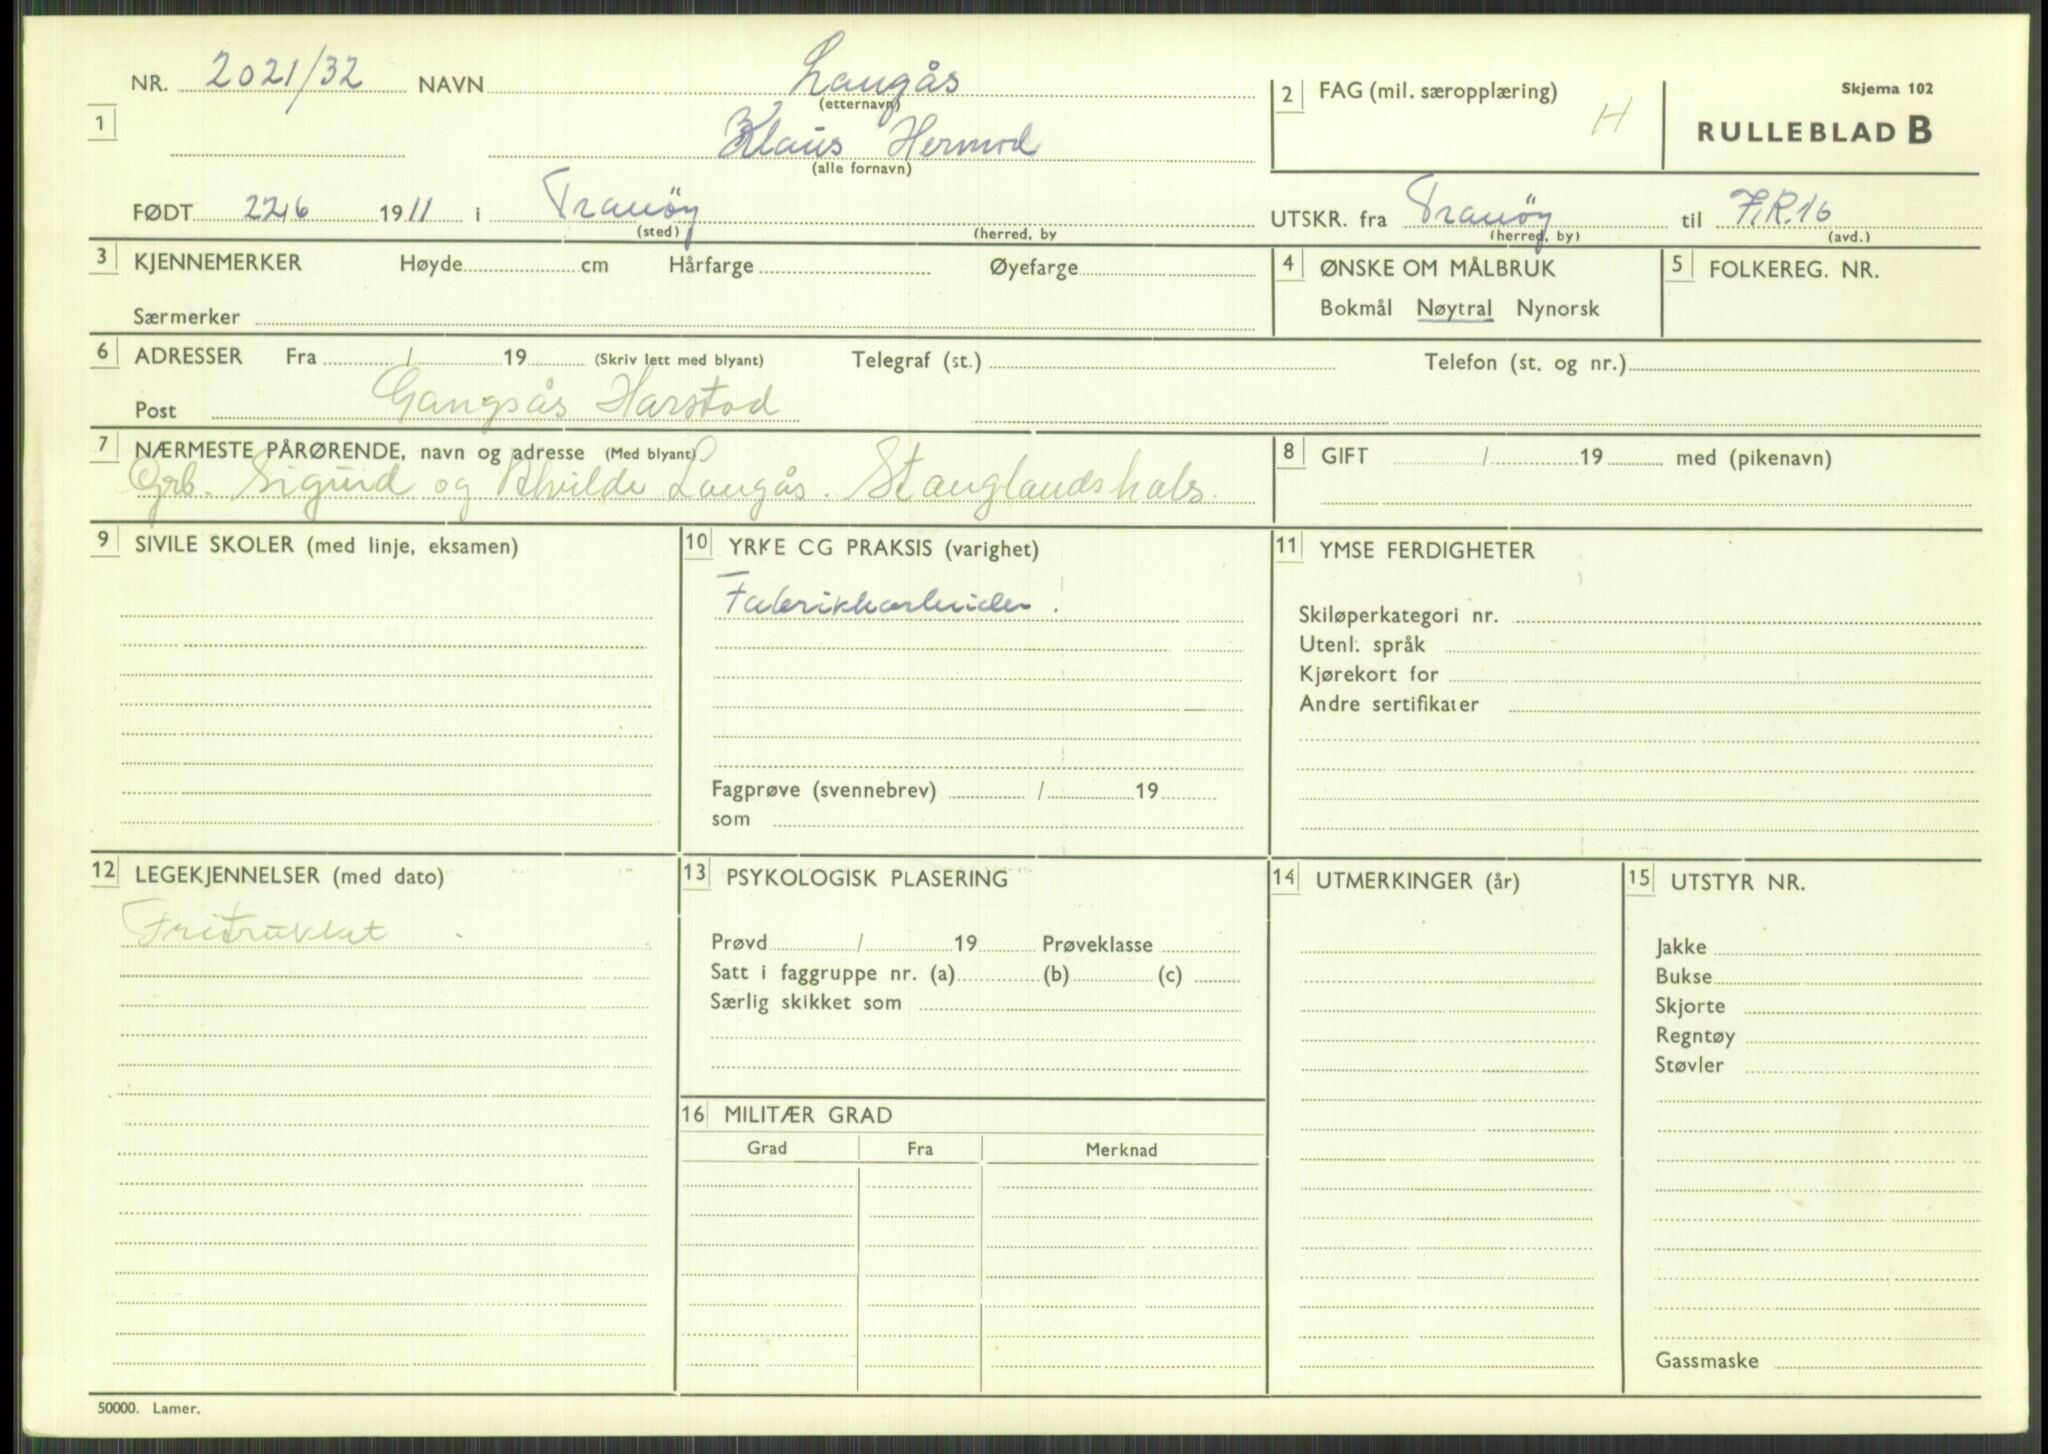 NR. 2021/32 NAVN Langås
(etternavn)
1
Klaus Hermod
(alle fornavn)
FØDT 22/6 1911 i Tranöy
(sted) (herred, by
2 FAG (mil. særopplæring) H
Skjema 102
RULLEBLAD B
UTSKR. fra Tranöy til F.R.16
(herred, by) (avd.)
3 KJENNEMERKER Høyde cm Hårfarge Øyefarge
Særmerker
4 ØNSKE OM MÅLBRUK
Bokmål Nøytral Nynorsk
5 FOLKEREG. NR.
6 ADRESSER Fra / 19 (Skriv lett med blyant) Telegraf (st.) Telefon (st. og nr.)
Post Gangsås Harstad
7 NÆRMESTE PÅRØRENDE, navn og adresse (Med blyant)
Sigurd og Langås. Stanglandshals.
8 GIFT / 19 med (pikenavn)
9 SIVILE SKOLER (med linje, eksamen)
10 YRKE CG PRAKSIS (varighet)
Fabrikkarbeider.
Fagprøve (svennebrev) / 19
som
11 YMSE FERDIGHETER
Skiløperkategori nr.
Utenl. språk
Kjørekort for
Andre sertifikater
12 LEGEKJENNELSER (med dato)
Fritrukket
13 PSYKOLOGISK PLASERING
Prøvd / 19 Prøveklasse
Satt i faggruppe nr. (a) (b) (c)
Særlig skikket som
14 UTMERKINGER (år)
15 UTSTYR NR.
Jakke
Bukse
Skjorte
Regntøy
Støvler
Gassmaske
16 MILITÆR GRAD
Grad Fra Merknad
50000. Lamer.